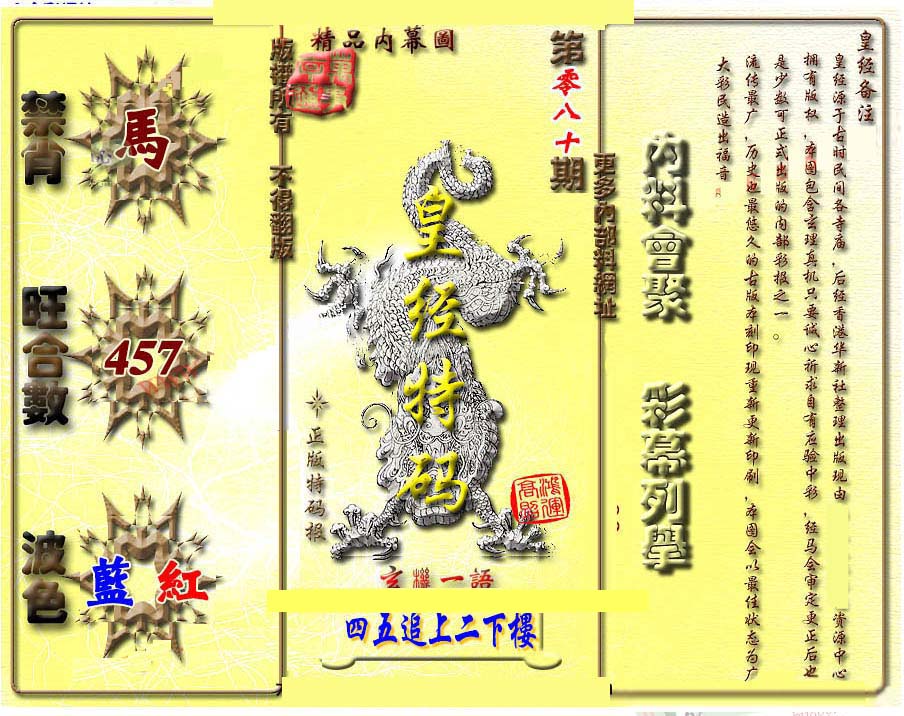 精品内幕圖
第零八十期
版權所有 不得翻版
更多内部料網址
禁肖
馬
旺合數
457
波色
藍 紅
皇经特码
正版特码报
鴻運高照
玄機一語
四五追上二下樓
内料會聚 彩幕列舉
皇经备注
皇经源于古时民间各寺庙，后经香港华新社整理出版现由
资源中心
拥有版权，本图包含玄理真机只要诚心祈求自有应验中彩，经马会审定更正后也
是少数可正式出版的内部彩报之一。
流传最广，历史也最悠久的古版本刻印现重新更新印刷，本图会以最佳状态为广
大彩民造出福音